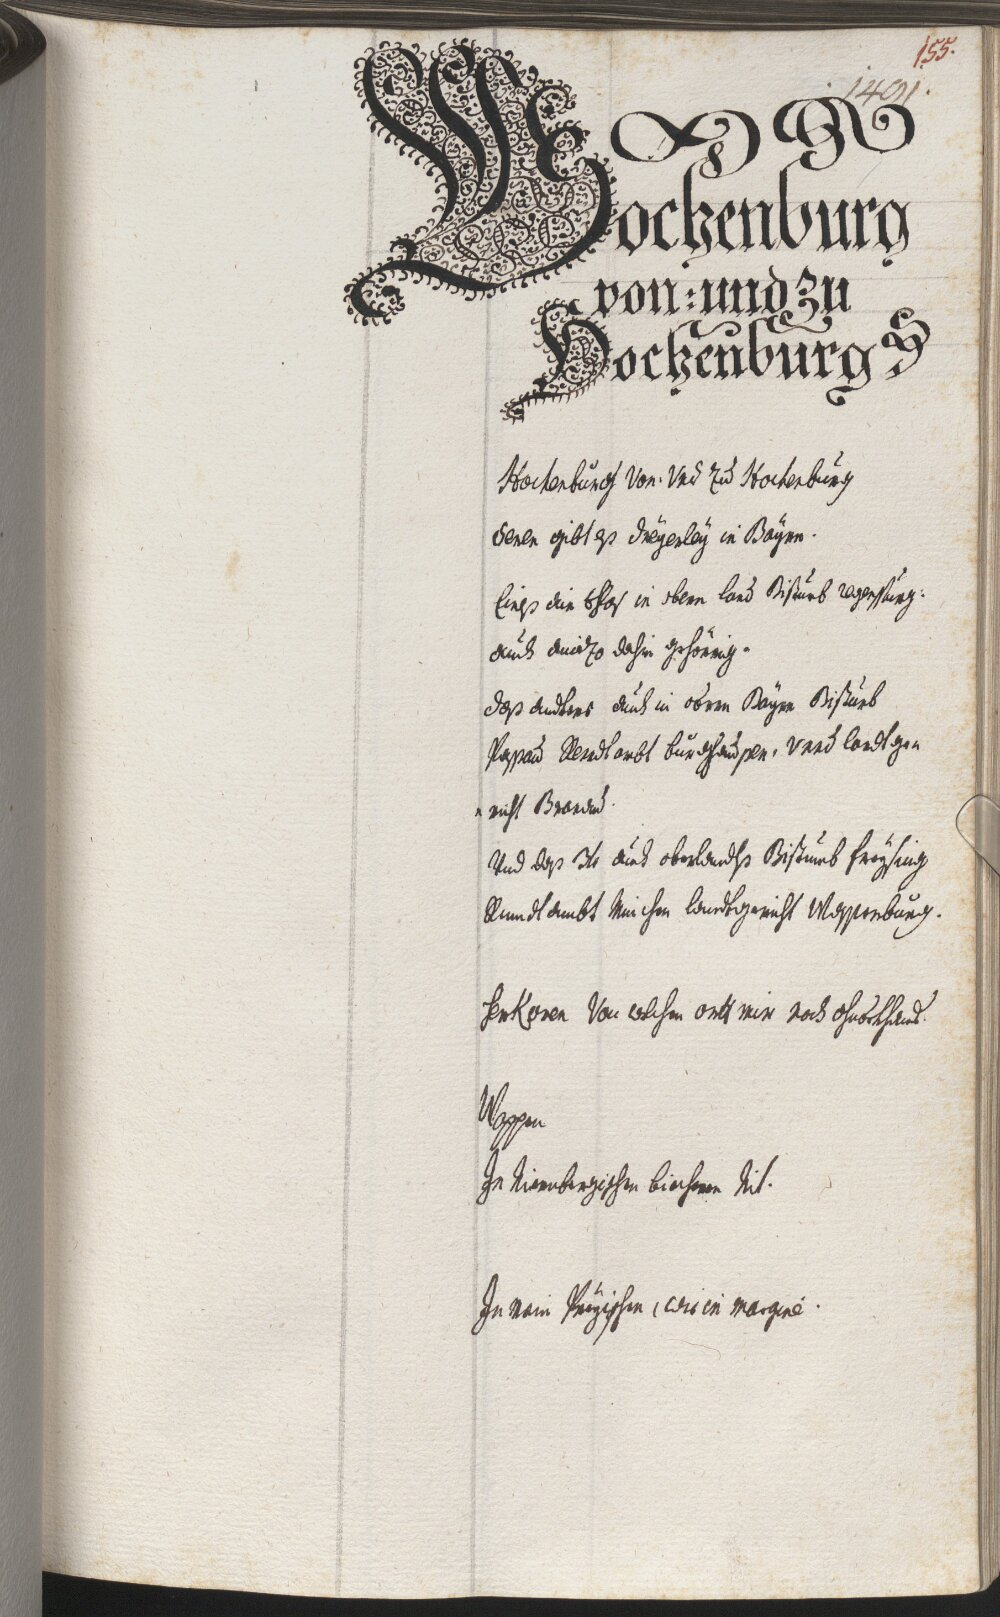 155.
1491.
Hockenburg
von: und zu
Hockenburg
Hockenburg von: Und zu Hockenburg
deren gibt es dreyerley in Bayrn.
in obern land Bistumb regenspurg.
auch dahin gehörig.
das anders auch in obern Bayrn Bistumb
Passau Rendtambt burghausen, Vnnd landtge-
richt Braunau.
Und das 3te auch oberlandts Bistumb freysing
Renndtambt München landtgericht Wasserburg.
von welchen ortt mir noch
Wappen
In Nirnbergischen
In mein wie in margine.